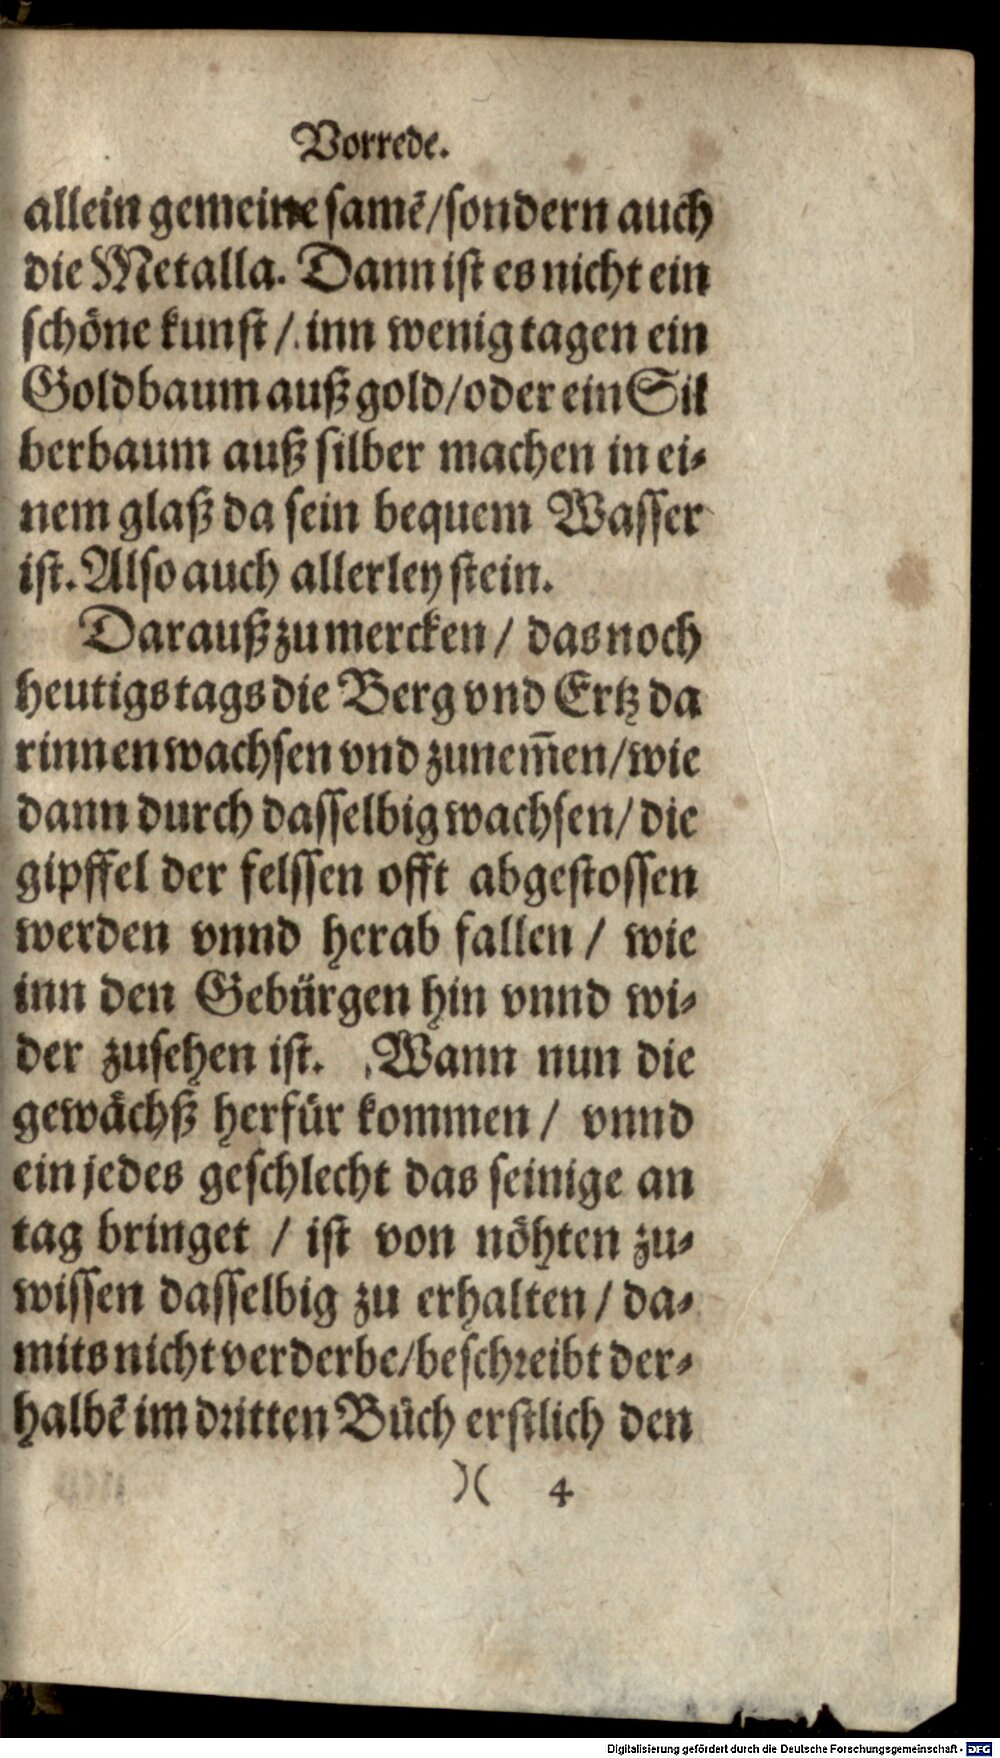 Vorrede.
allein gemeine samē/sondern auch
die Metalla. Dann ist es nicht ein
schöne kunst / inn wenig tagen ein
Goldbaum auß gold/oder ein Sil
berbaum auß silber machen in ei-
nem glaß da sein bequem Wasser
ist. Also auch allerley stein.
Darauß zu mercken / das noch
heutigs tags die Berg vnd Ertz da
rinnen wachsen vnd zunem̄en/wie
dann durch dasselbig wachsen/ die
gipffel der felssen offt abgestossen
werden vnnd herab fallen / wie
inn den Gebürgen hin vnnd wi-
der zusehen ist. Wann nun die
gewächß herfür kommen / vnnd
ein jedes geschlecht das seinige an
tag bringet / ist von nöhten zu-
wissen dasselbig zu erhalten / da-
mits nicht verderbe/beschreibt der-
halbē im dritten Bůch erstlich den
)( 4
Digitalisierung gefördert durch die Deutsche Forschungsgemeinschaft - DFG